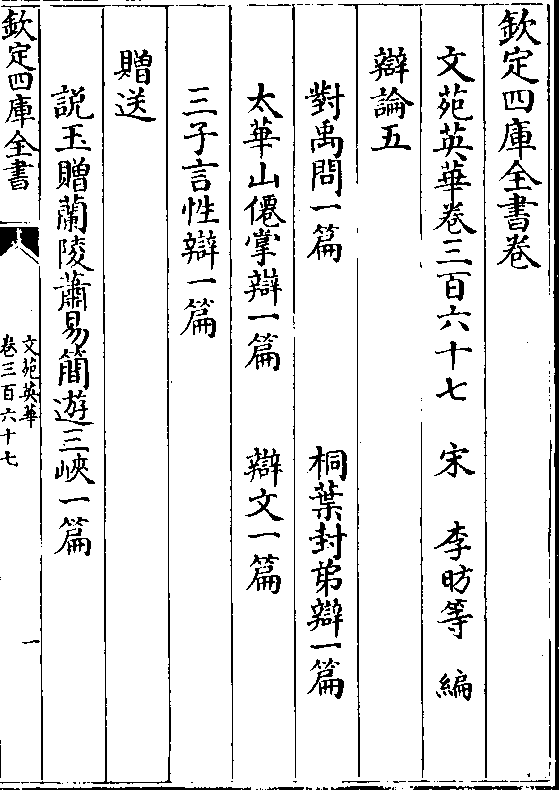 欽定四庫全書卷
文苑英華卷三百六十七 宋 李昉等 編
辯論五
對禹問一篇 桐葉封弟辯一篇
太華山僊掌辯一篇 辯文一篇
三子言性辯一篇
贈送
説玉贈蘭陵蕭易簡遊三峽一篇
欽定四庫全書
文苑英華
卷三百六十七
一